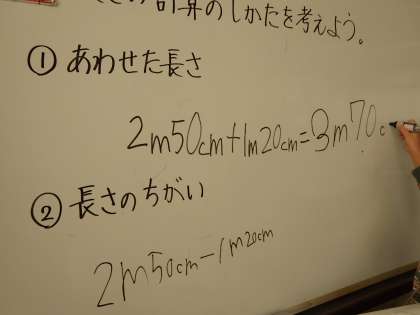 計算のしかたを考えよう。
① あわせた長さ
2m50cm+1m20cm=3m70c
② 長さのちがい
2m50cm-1m20cm